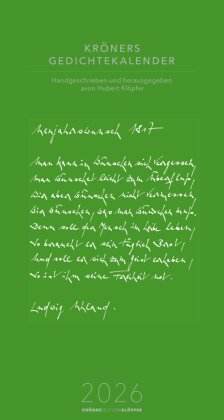 KRÖNERS
GEDICHTEKALENDER
Handgeschrieben und herausgegeben
avon Hubert Klöpfer
Neujahrswunsch 1817
Man kann in Wünschen sich vergessen,
Man wünschet leicht zum Überfluß,
Wir aber wünschen nicht vermessen,
Wir wünschen, was man wünschen muß.
Denn soll der Mensch im Leibe leben,
So brauchet er sein täglich Brot,
Und soll er sich zum Geist erheben,
So ist ihm seine Freiheit not.
Ludwig Uhland.
2026
KRÖNEREDITIONKLÖPFER